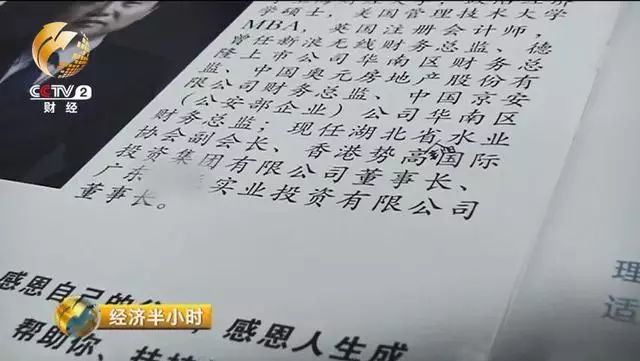 学硕士，美国管理技术大学
MBA，英国注册会计师，
曾任新浪无线财务总监、德
隆上市公司华南区财务总
监、中国奥元房地产股份有
限公司财务总监、中国京安
（公安部企业）公司华南区
财务总监；现任湖北省水业
协会副会长、香港势高国际
投资集团有限公司董事长、
广东 实业投资有限公司
董事长。
CCTV 2
财经
感恩自己的 ，感恩人生成
帮助你、扶
理
适
经济半小时